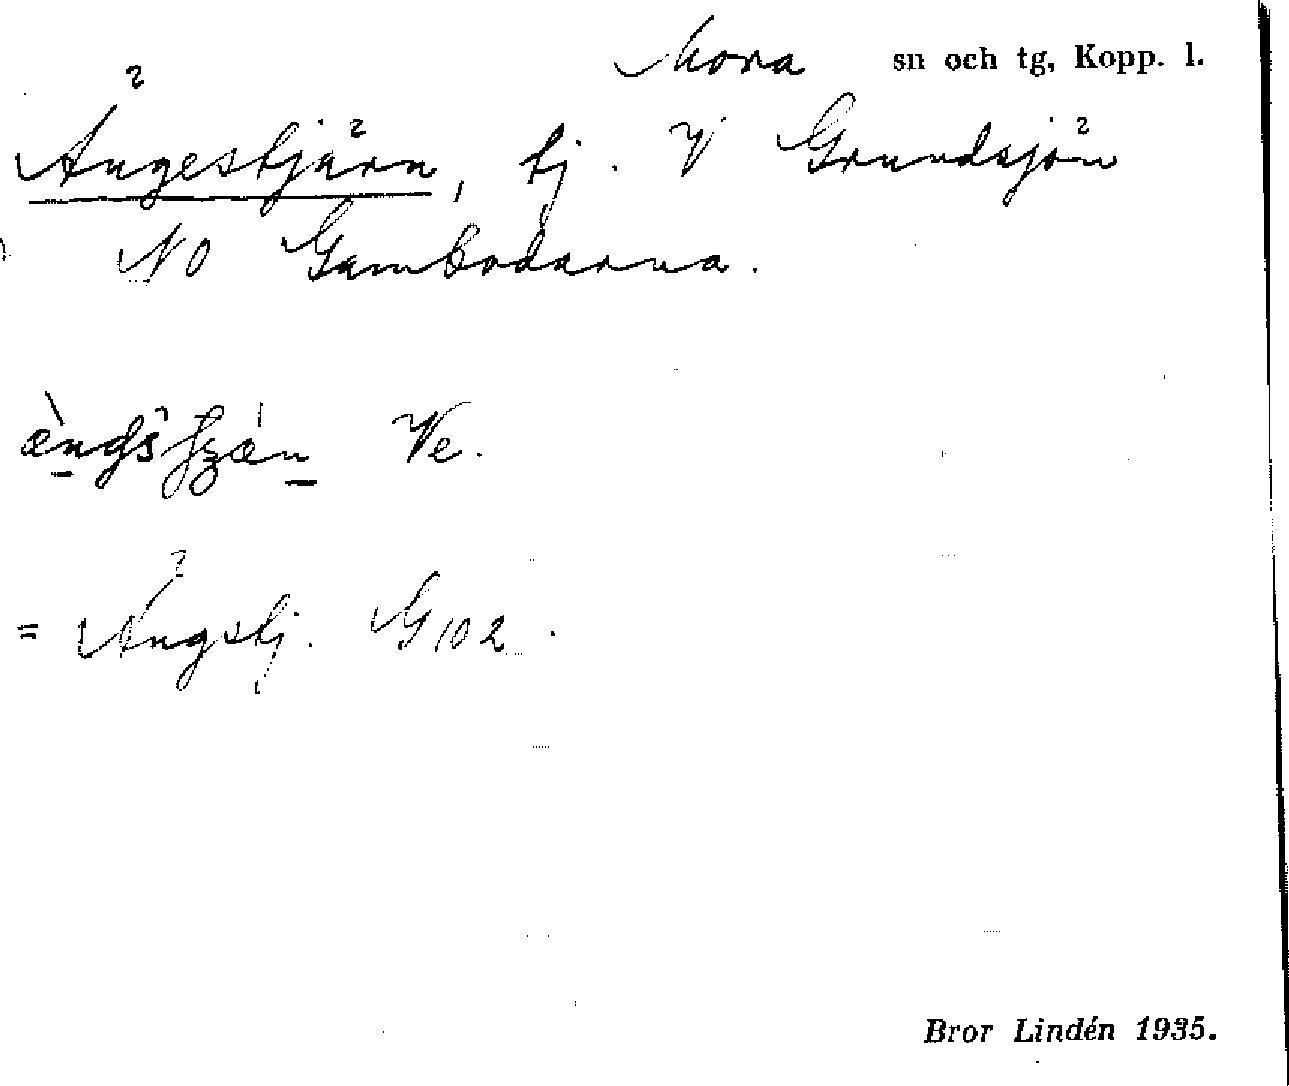 Mora sn och tg, Kopp. l.
Ängestjärn, tj. V Grundsjön
NO Gambodarna.
Ve.
= Ängstj. G 102.
Bror Lindén 1935.